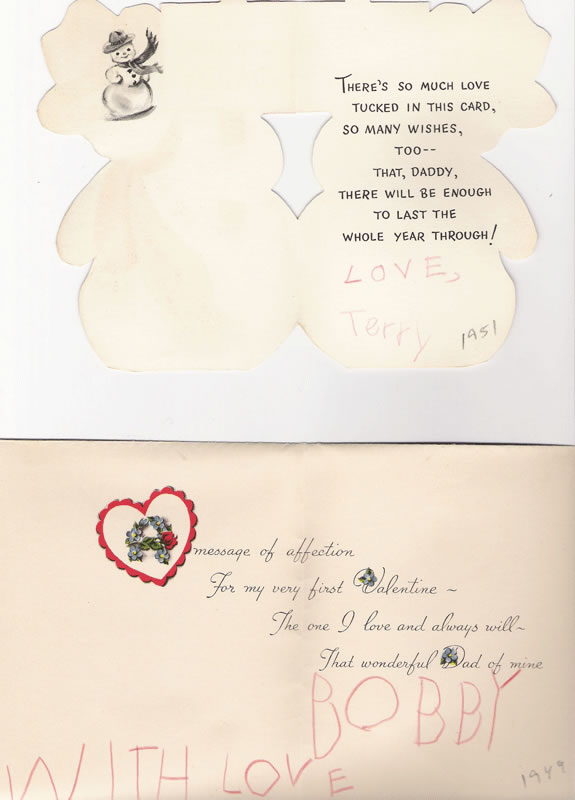 THERE'S SO MUCH LOVE
TUCKED IN THIS CARD,
SO MANY WISHES,
TOO--
THAT, DADDY,
THERE WILL BE ENOUGH
TO LAST THE
WHOLE YEAR THROUGH!
LOVE,
Terry 1951
A message of affection
For my very first Valentine ~
The one I love and always will~
That wonderful Dad of mine
BOBBY
WITH LOVE 1949